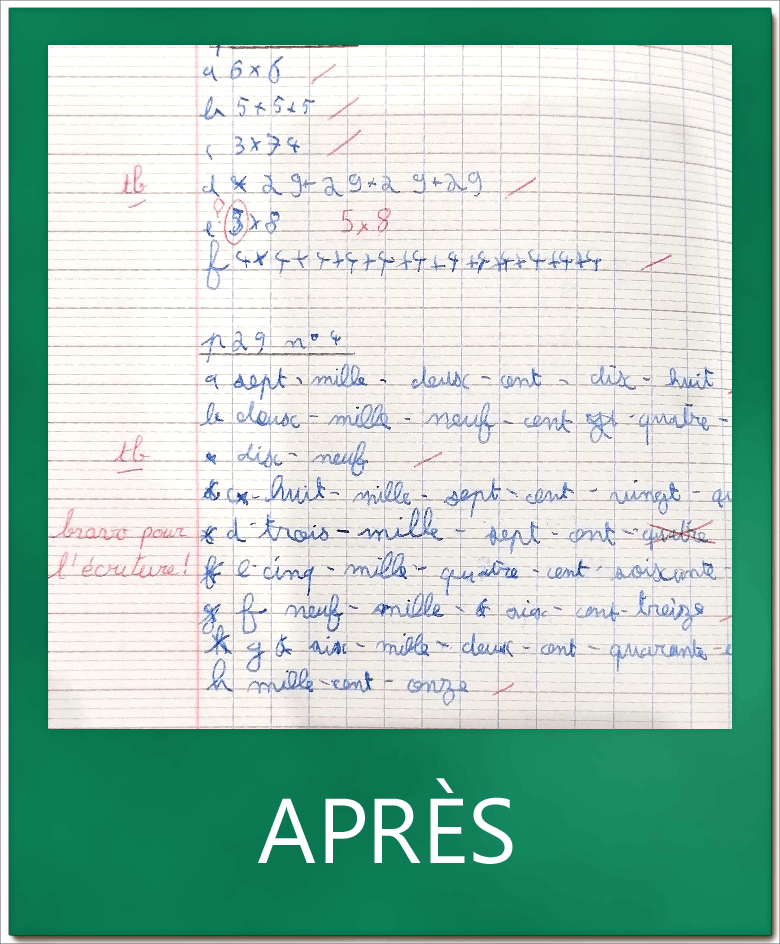 a 6×6
b 5+5+5
c 3×74
tb
d 29+29+29+29
? e 3×8 5×8
f 4+4+4+4+4+4+4+4+4+4+4
p29 n°4
a sept-mille-deux-cent-dix-huit
b deux-mille-neuf-cent-quatre-
tb
dix-neuf
c huit-mille-sept-cent-vingt-qu
bravo pour
d trois-mille-sept-cent-quatre
l'écriture!
e cinq-mille-quatre-cent-soixante-
f neuf-mille-six-cent-treize
g six-mille-deux-cent-quarante-e
h mille-cent-onze
APRÈS